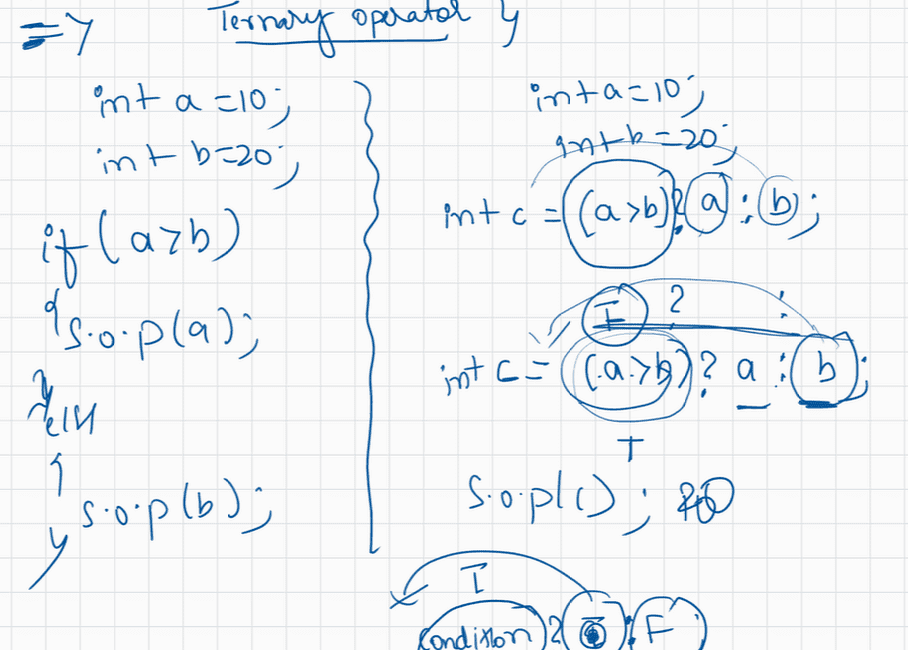 => Ternary operator y
int a =10;
int b=20;
if (a>b)
{
s.o.p(a);
}
else
{
s.o.p(b);
}
int a=10;
int b=20;
int c = (a>b)? a : b;
? :
int c = (a>b)? a : b;
T
s.o.p(c);
I
condition ? : F